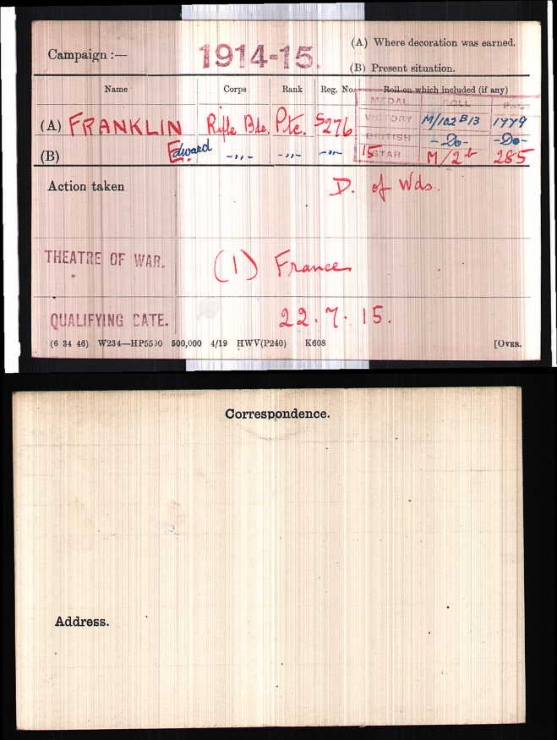 Campaign :— 1914-15. (A) Where decoration was earned.
(B) Present situation.
Name Corps Rank Reg. No. Roll on which included (if any)
MEDAL ROLL PAGE
(A) FRANKLIN Rifle Bde. Pte. S276 VICTORY M/102 B13 1779
BRITISH -Do- -Do-
(B) Edward -"- -"- -"- 15 STAR M/2 285
Action taken D. of Wds.
THEATRE OF WAR. (1) France
QUALIFYING DATE. 22.7.15.
(6 34 46) W234—HP5590 500,000 4/19 HWV(P240) K608 [OVER.
Correspondence.
Address.